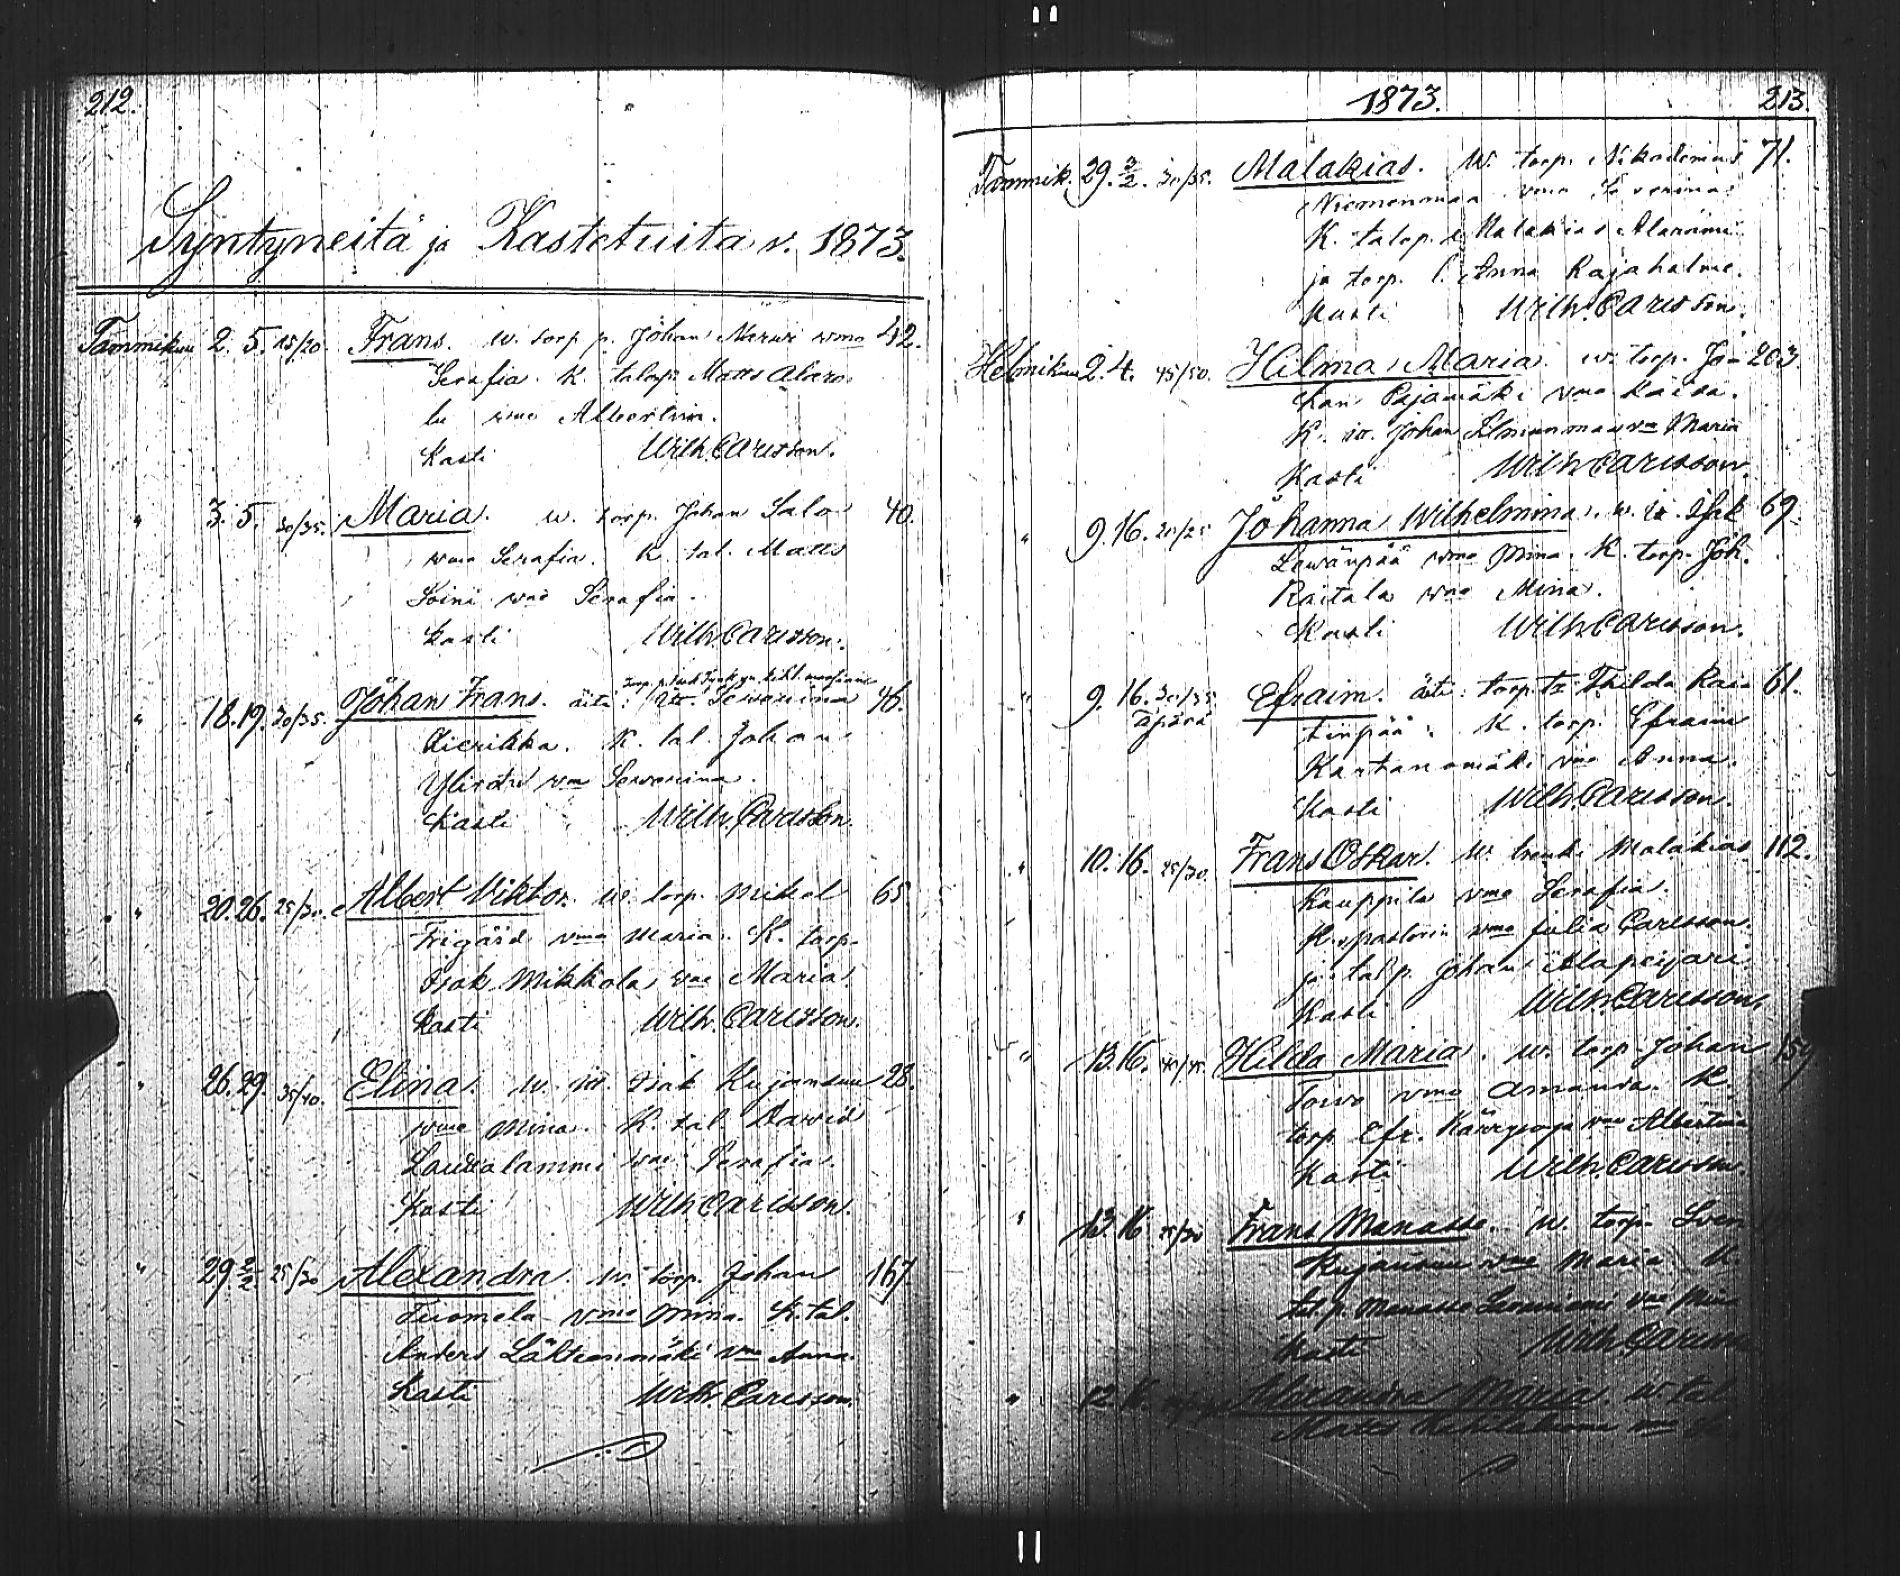 212.
Syntyneitä ja Kastetuita v. 1873.
Tammikuu 2. 5. 15/20. Frans. w. torp. p. Johan Narwi wmo 42.
Serafia. K. talop. Matts Alaro
lu wmo Albertina.
Kasti Wilh. Carlsson.
" 3. 5. 30/35. Maria. w. torp. Johan Salo 40.
wmo Serafia. K. tal. Matts
Soini wmo Serafia.
Kasti Wilh. Carlsson.
" 18. 19. 30/35. Johan Frans. äiti: itt. Sewerina 46.
K. tal. Johan
wmo Sewerina.
Kasti Wilh. Carlsson.
" 20. 26. 25/30. Albert Viktor. w. torp. Mikel 65
Frigård wmo Maria. K. torp.
Isak Mikkola wmo Maria.
Kasti Wilh. Carlsson.
" 26. 29. 35/40. Elina. w. itt. Isak Kujansuu 28.
wmo Mina. K. tal. Dawid
Laurolammi wmo Serafia.
Kasti Wilh. Carlsson.
" 29. 2/2. 25/30 Alexandra. w. torp. Johan 167
Tuomela wmo Mina. K. tal.
Anders Lähteenmäki wmo Anna.
Kasti Wilh. Carlsson.
1873. 213.
Tammik. 29. 2/2. 30/35. Malakias. w. torp. Nikodemus 71.
Niemenmaa wmo Sewerina.
K. talop. Malakias
ja torp. l. Anna Rajahalme.
Kasti Wilh. Carlsson.
Helmikuu 2. 4. 45/50. Hilma Maria. w. torp. Jo- 203.
han Pajamäki wmo Kaisa.
K. itt. Johan wmo Maria
Kasti Wilh. Carlsson.
" 9. 16. 20/25 Johanna Wilhelmina. w. itt. Isak 69.
Lewänpää wmo Mina. K. torp. Joh.
Raitala wmo Mina.
Kasti Wilh. Carlsson.
" 9. 16. 30/35 Efraim. äiti: torp. tr Thilda Rai- 61.
Äpärä K. torp. Efraim
Kartanomäki wmo Anna.
Kasti Wilh. Carlsson.
" 10. 16. 25/30. Frans Oskar. w. renki Malakias 112.
Kauppila wmo Serafia.
K. pastorin wmo Julia Carlsson.
ja tal p. Johan Alapeijari.
Kasti Wilh. Carlsson.
" 13. 16. 40/45. Hilda Maria. w. torp. Johan 159
Torvo wmo Amanda. K.
torp. Efr. wmo Albertina
Kasti Wilh. Carlsson.
" 13. 16 25/30 Frans Manasse. w. torp. Sven
Kujansuu wmo Maria K.
tal p. Manasse wmo Mina
Kasti Wilh. Carlsson
" 12. Alexandra Maria. w tal
Matts wmo